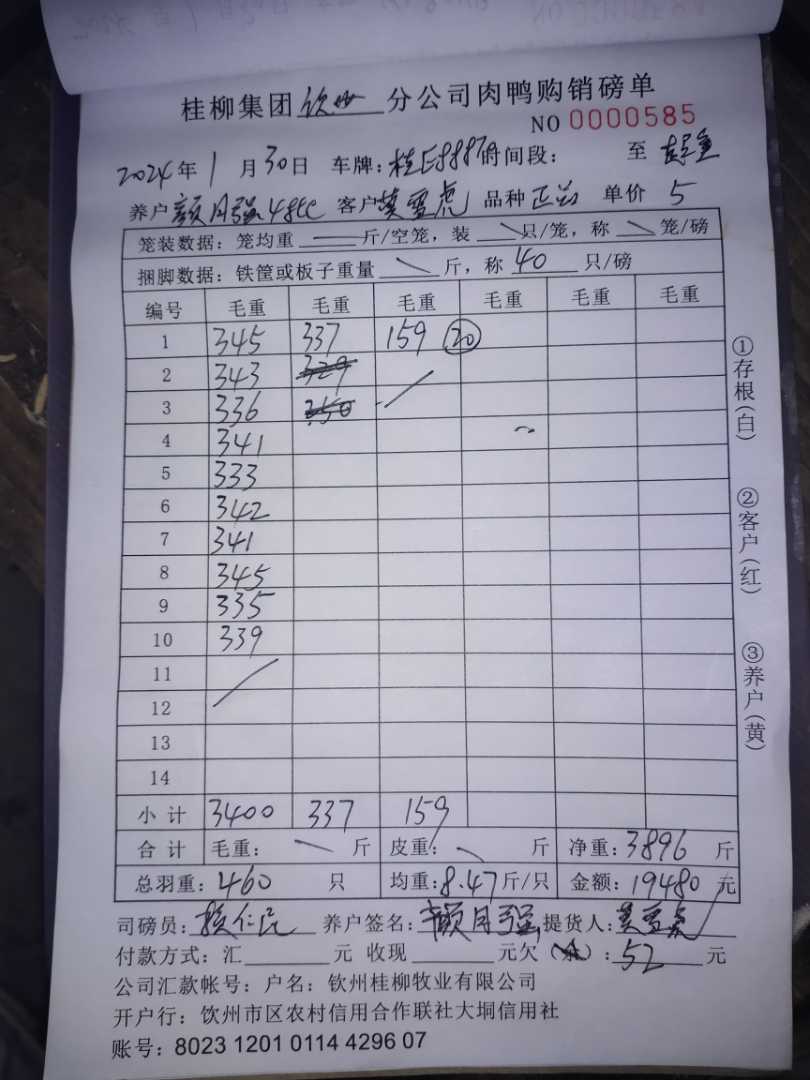 桂柳集团钦州分公司肉鸭购销磅单
NO 0000585
2024年1月30日 车牌:桂E8887 时间段: 至
养户颜月强 客户黄雪虎 品种正前 单价5
笼装数据:笼均重 斤/空笼,装 只/笼,称 笼/磅
捆脚数据:铁筐或板子重量 斤,称40只/磅
编号 毛重 毛重 毛重 毛重 毛重 毛重
1 345 337 159 20
2 343 329
3 336 350
4 341
5 333
6 342
7 341
8 345
9 335
10 339
11
12
13
14
小计 3400 337 159
合计 毛重: 斤 皮重: 斤 净重:3896斤
总羽重:460只 均重:8.47斤/只 金额:19480元
司磅员:颜仁民 养户签名:颜月强 提货人:黄雪虎
付款方式:汇 元 收现 元欠( ):52元
公司汇款帐号:户名:钦州桂柳牧业有限公司
开户行:钦州市区农村信用合作联社大垌信用社
账号:8023 1201 0114 4296 07
①存根(白)
②客户(红)
③养户(黄)